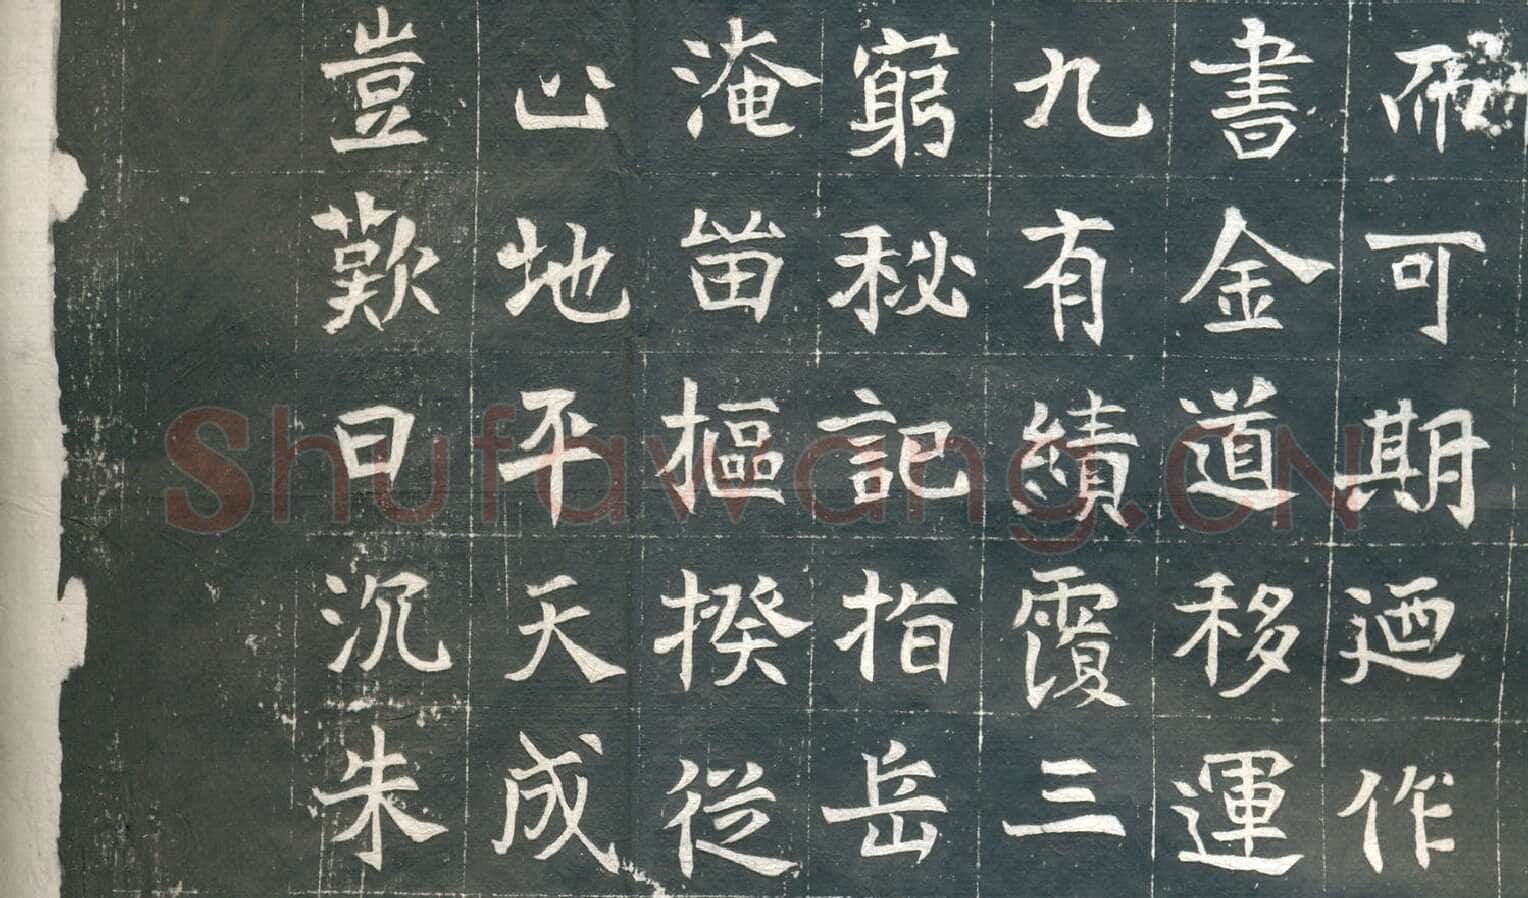 而可期迺作
書金道移運
九有績覆三
窮秘記指岳
淹䒤樞揆從
心地平天成
豈歎曰沉朱
Shufawang.CN